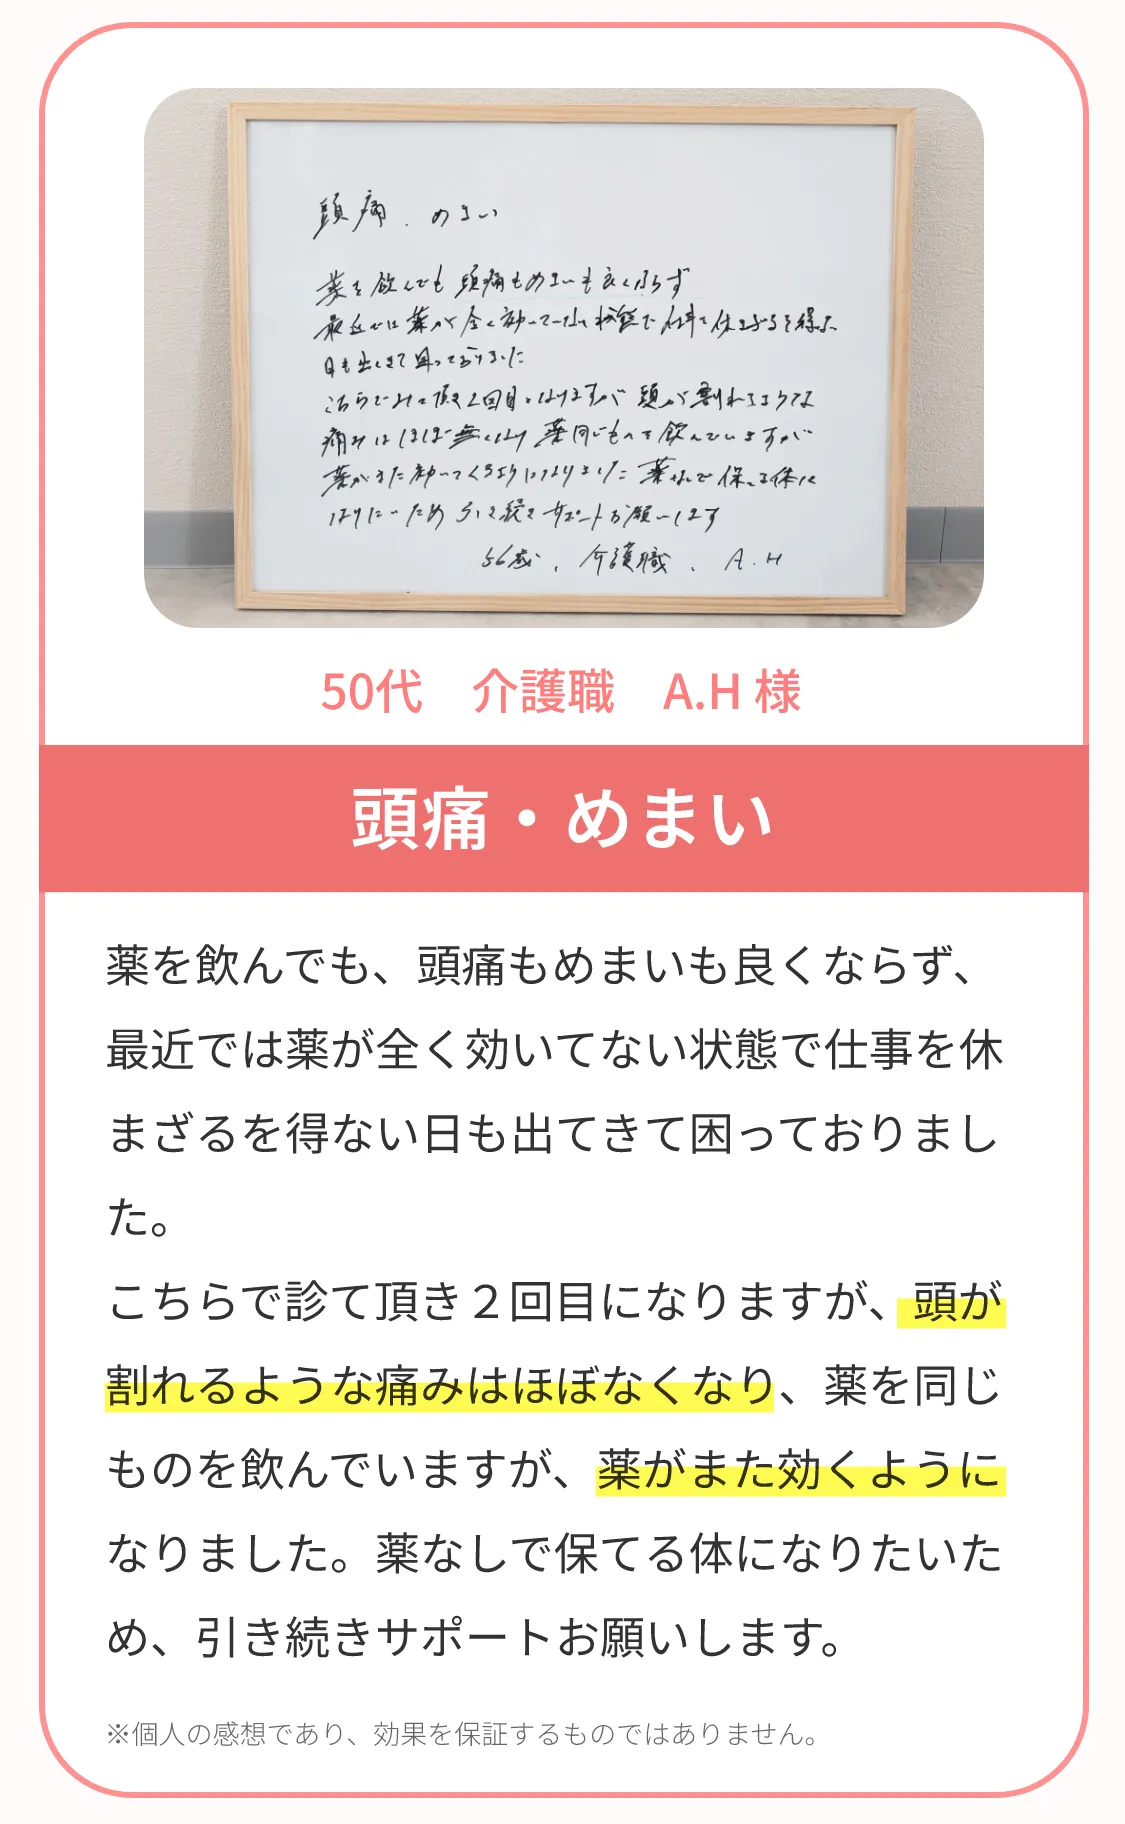 頭痛.めまい
薬を飲んでも頭痛もめまいも良くならず
最近では薬が全く効いてない状態で仕事を休まざるを得ない
日も出てきて困っておりました
こちらでみて頂き2回目になりますが頭が割れるような
痛みはほぼ無くなり薬同じものを飲んでいますが
薬がまた効いてくるようになりました薬なしで保てる体に
なりたいため引き続きサポートお願いします
56歳、介護職、A.H
50代 介護職 A.H 様
頭痛・めまい
薬を飲んでも、頭痛もめまいも良くならず、
最近では薬が全く効いてない状態で仕事を休
まざるを得ない日も出てきて困っておりまし
た。
こちらで診て頂き２回目になりますが、頭が
割れるような痛みはほぼなくなり、薬を同じ
ものを飲んでいますが、薬がまた効くように
なりました。薬なしで保てる体になりたいた
め、引き続きサポートお願いします。
※個人の感想であり、効果を保証するものではありません。